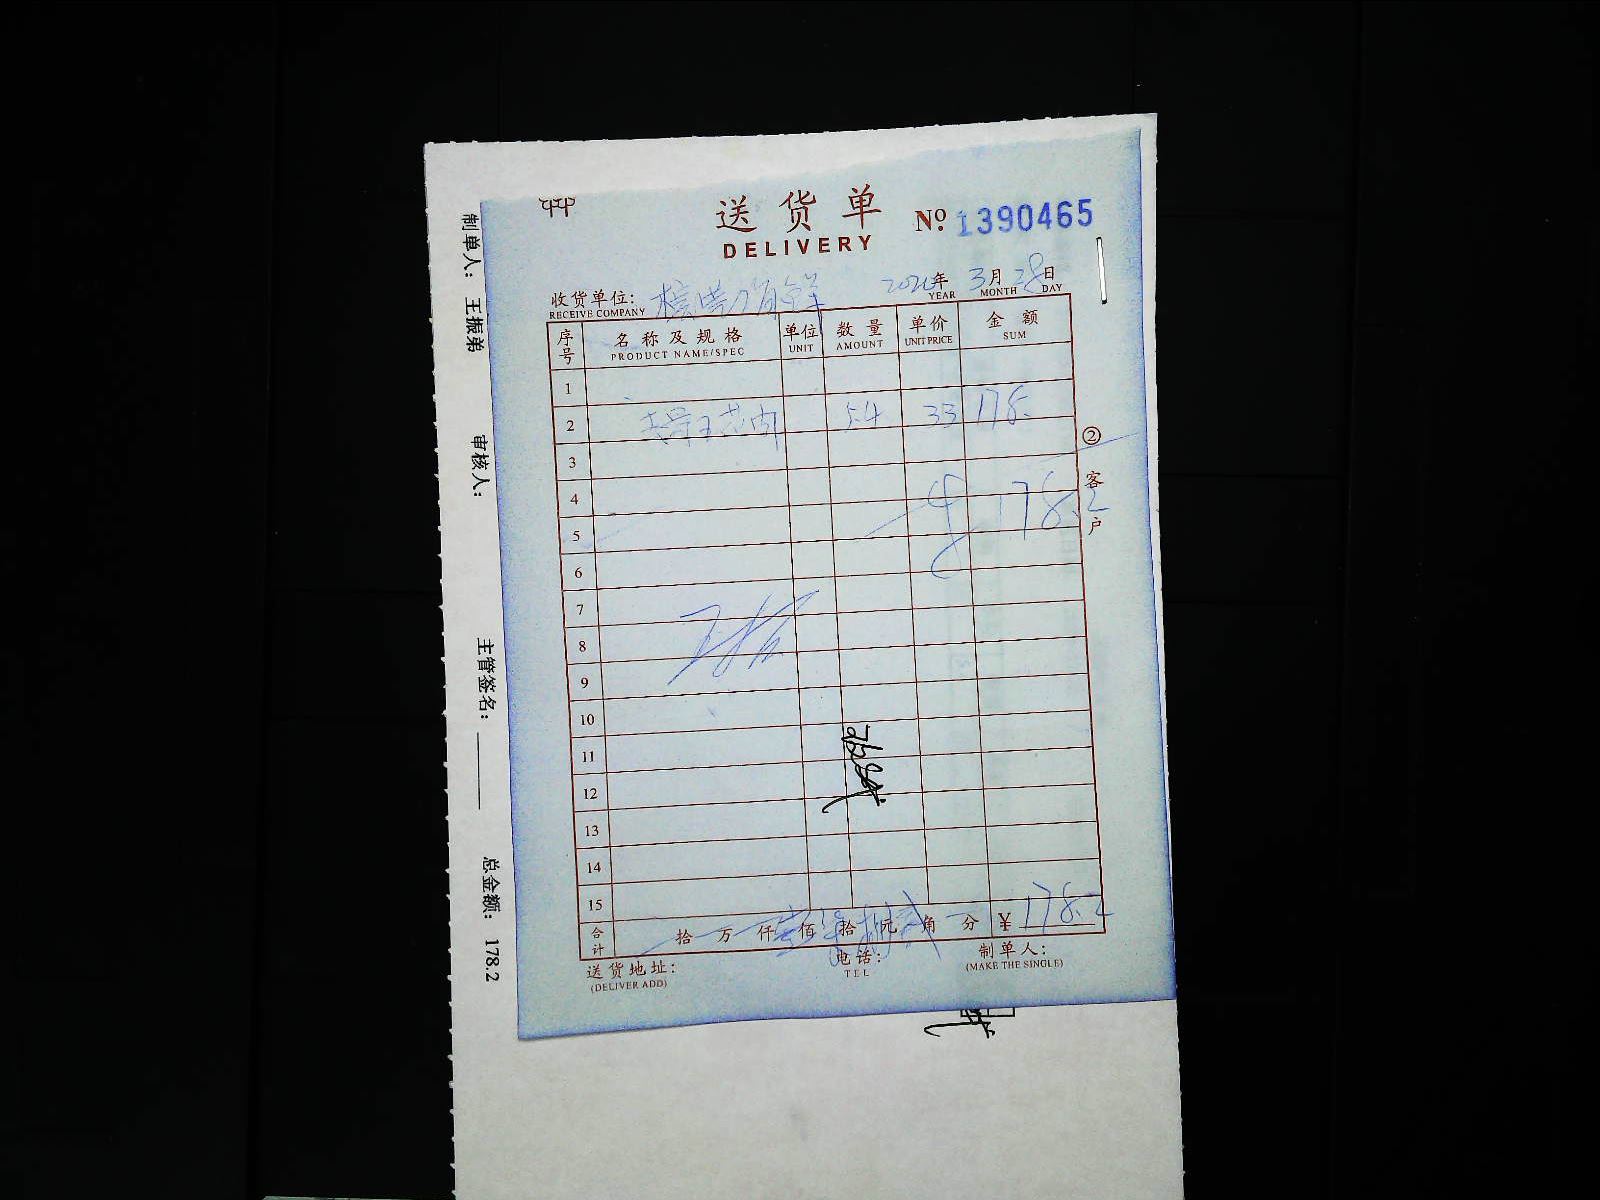 送货单
DELIVERY
№ 1390465
收货单位:
RECEIVE COMPANY
年 3月 28日
YEAR MONTH DAY
序号 名称及规格 单位 数量 单价 金额
PRODUCT NAME/SPEC UNIT AMOUNT UNIT PRICE SUM
1
2 5.4 33 178.
3
4
178.2
5
6
7
8
9
10
11
12
13
14
15
合计 拾 万 仟 佰 拾 元 角 分 ¥ 178.2
送货地址: 电话: 制单人:
(DELIVER ADD) TEL (MAKE THE SINGLE)
② 客户
制单人: 王振弟 审核人: 主管签名: 总金额: 178.2